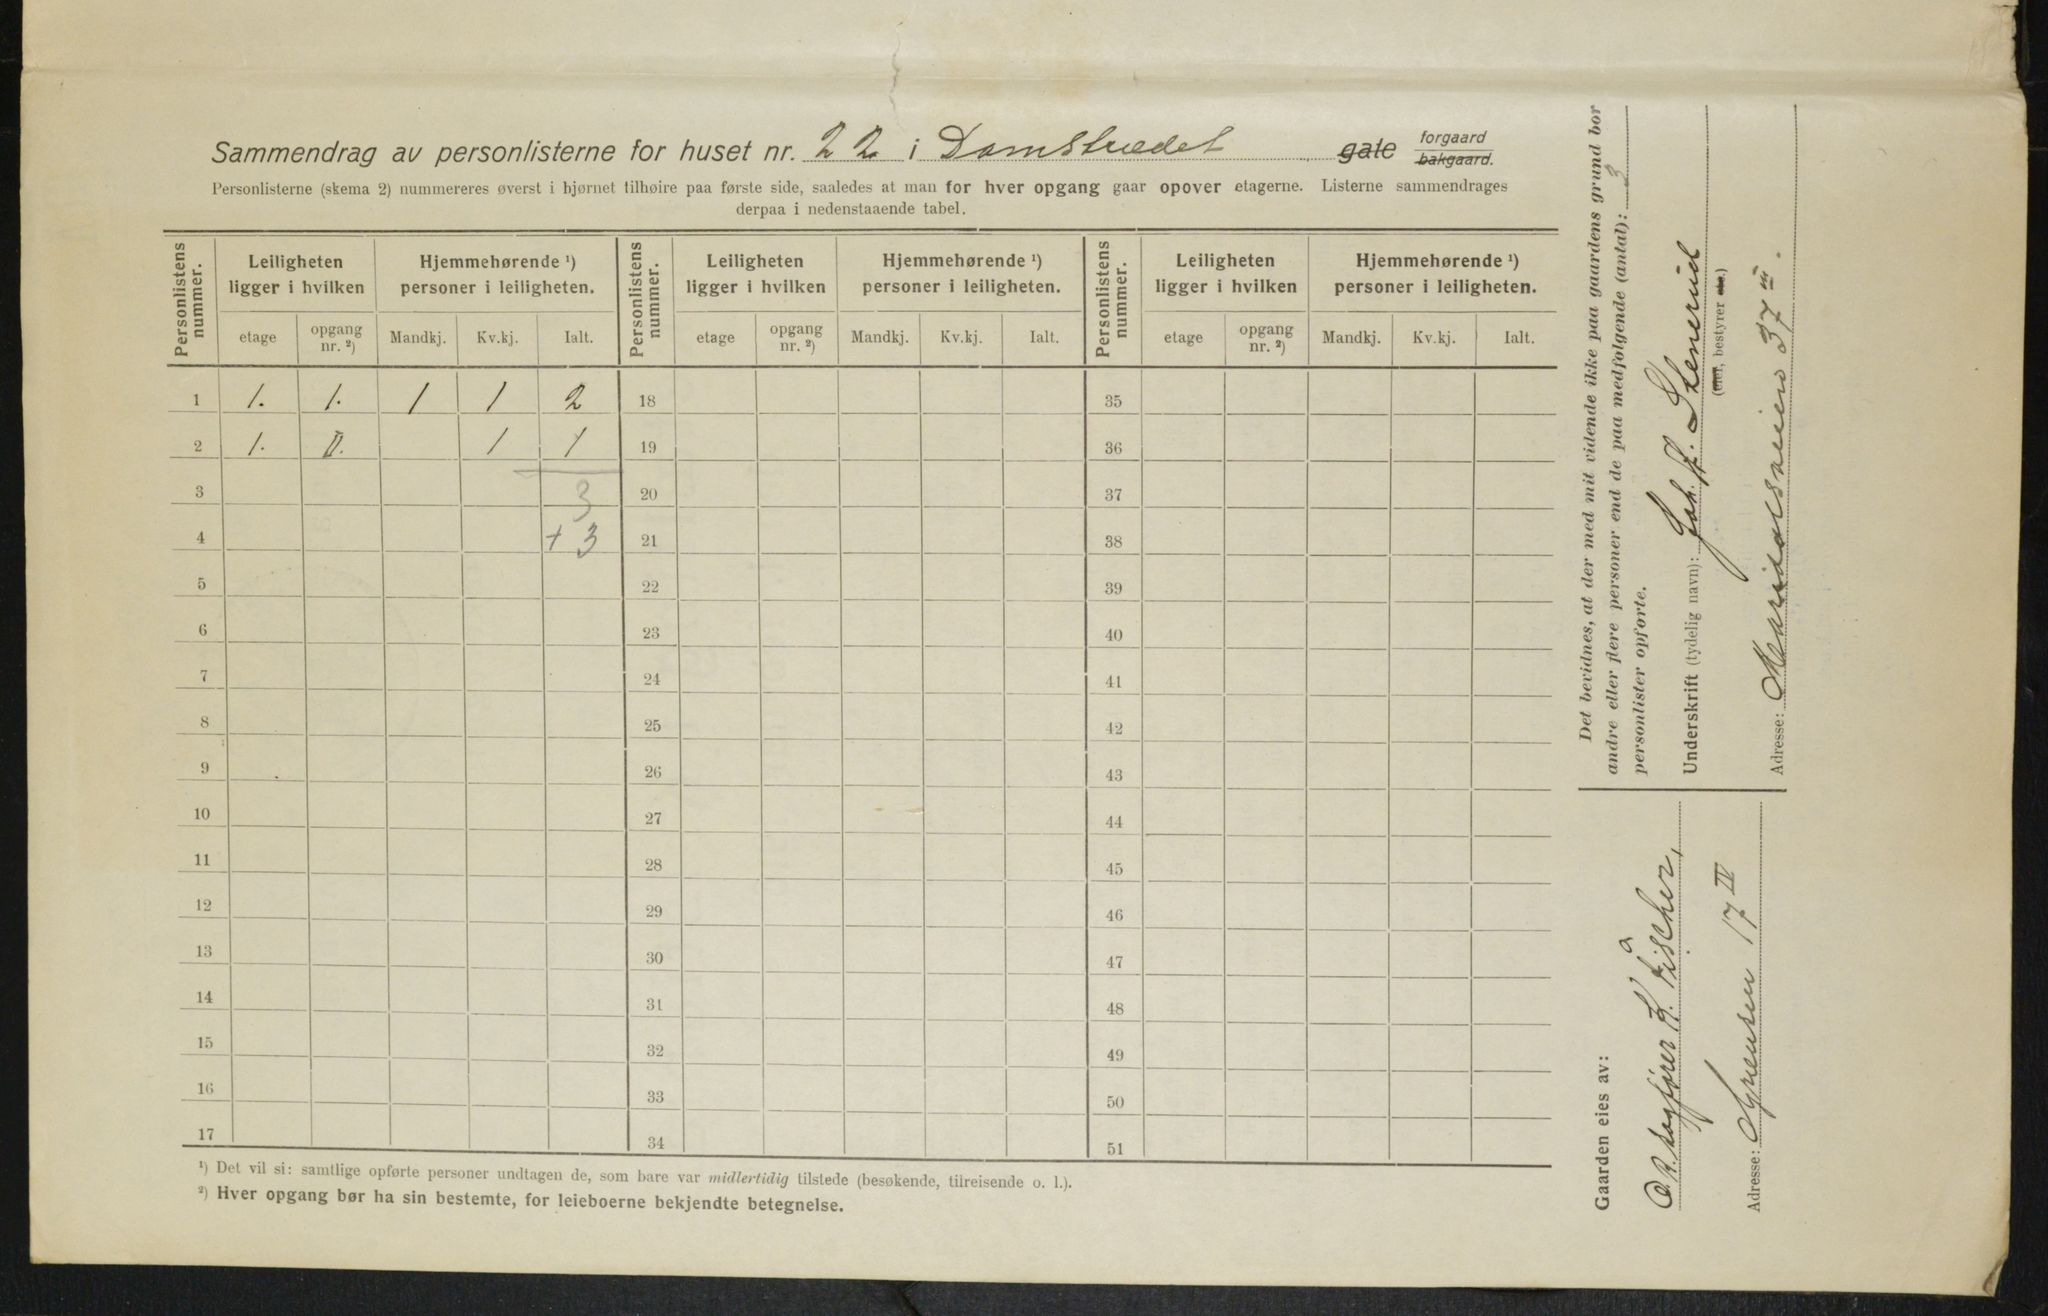 Sammendrag av personlisterne for huset nr. 22 i Damstrædet gate forgaard bakgaard.
Personlisterne (skema 2) nummereres øverst i hjørnet tilhøire paa første side, saaledes at man for hver opgang gaar opover etagerne. Listerne sammendrages
derpaa i nedenstaaende tabel.
Personlistens nummer. Leiligheten ligger i hvilken Hjemmehørende ¹) personer i leiligheten. Personlistens nummer. Leiligheten ligger i hvilken Hjemmehørende ¹) personer i leiligheten. Personlistens nummer. Leiligheten ligger i hvilken Hjemmehørende ¹) personer i leiligheten.
etage opgang nr. ²) Mandkj. Kv.kj. Ialt. etage opgang nr. ²) Mandkj. Kv.kj. Ialt. etage opgang nr. ²) Mandkj. Kv.kj. Ialt.
1 1. 1. 1 1 2 18 35
2 1. II. 1 1 19 36
3 3 20 37
4 + 3 21 38
5 22 39
6 23 40
7 24 41
8 25 42
9 26 43
10 27 44
11 28 45
12 29 46
13 30 47
14 31 48
15 32 49
16 33 50
17 34 51
¹) Det vil si: samtlige opførte personer undtagen de, som bare var midlertidig tilstede (besøkende, tilreisende o. l.).
²) Hver opgang bør ha sin bestemte, for leieboerne bekjendte betegnelse.
Det bevidnes, at der med mit vidende ikke paa gaardens grund bor
andre eller flere personer end de paa medfølgende (antal): 3
personlister opførte.
Underskrift (tydelig navn): Joh. Fr. Stenerud
(eier, bestyrer etc.)
Adresse: Maridalsveien 37 III.
Gaarden eies av:
O.R. sagfører K. Fischer,
Adresse: Grensen 17 IV